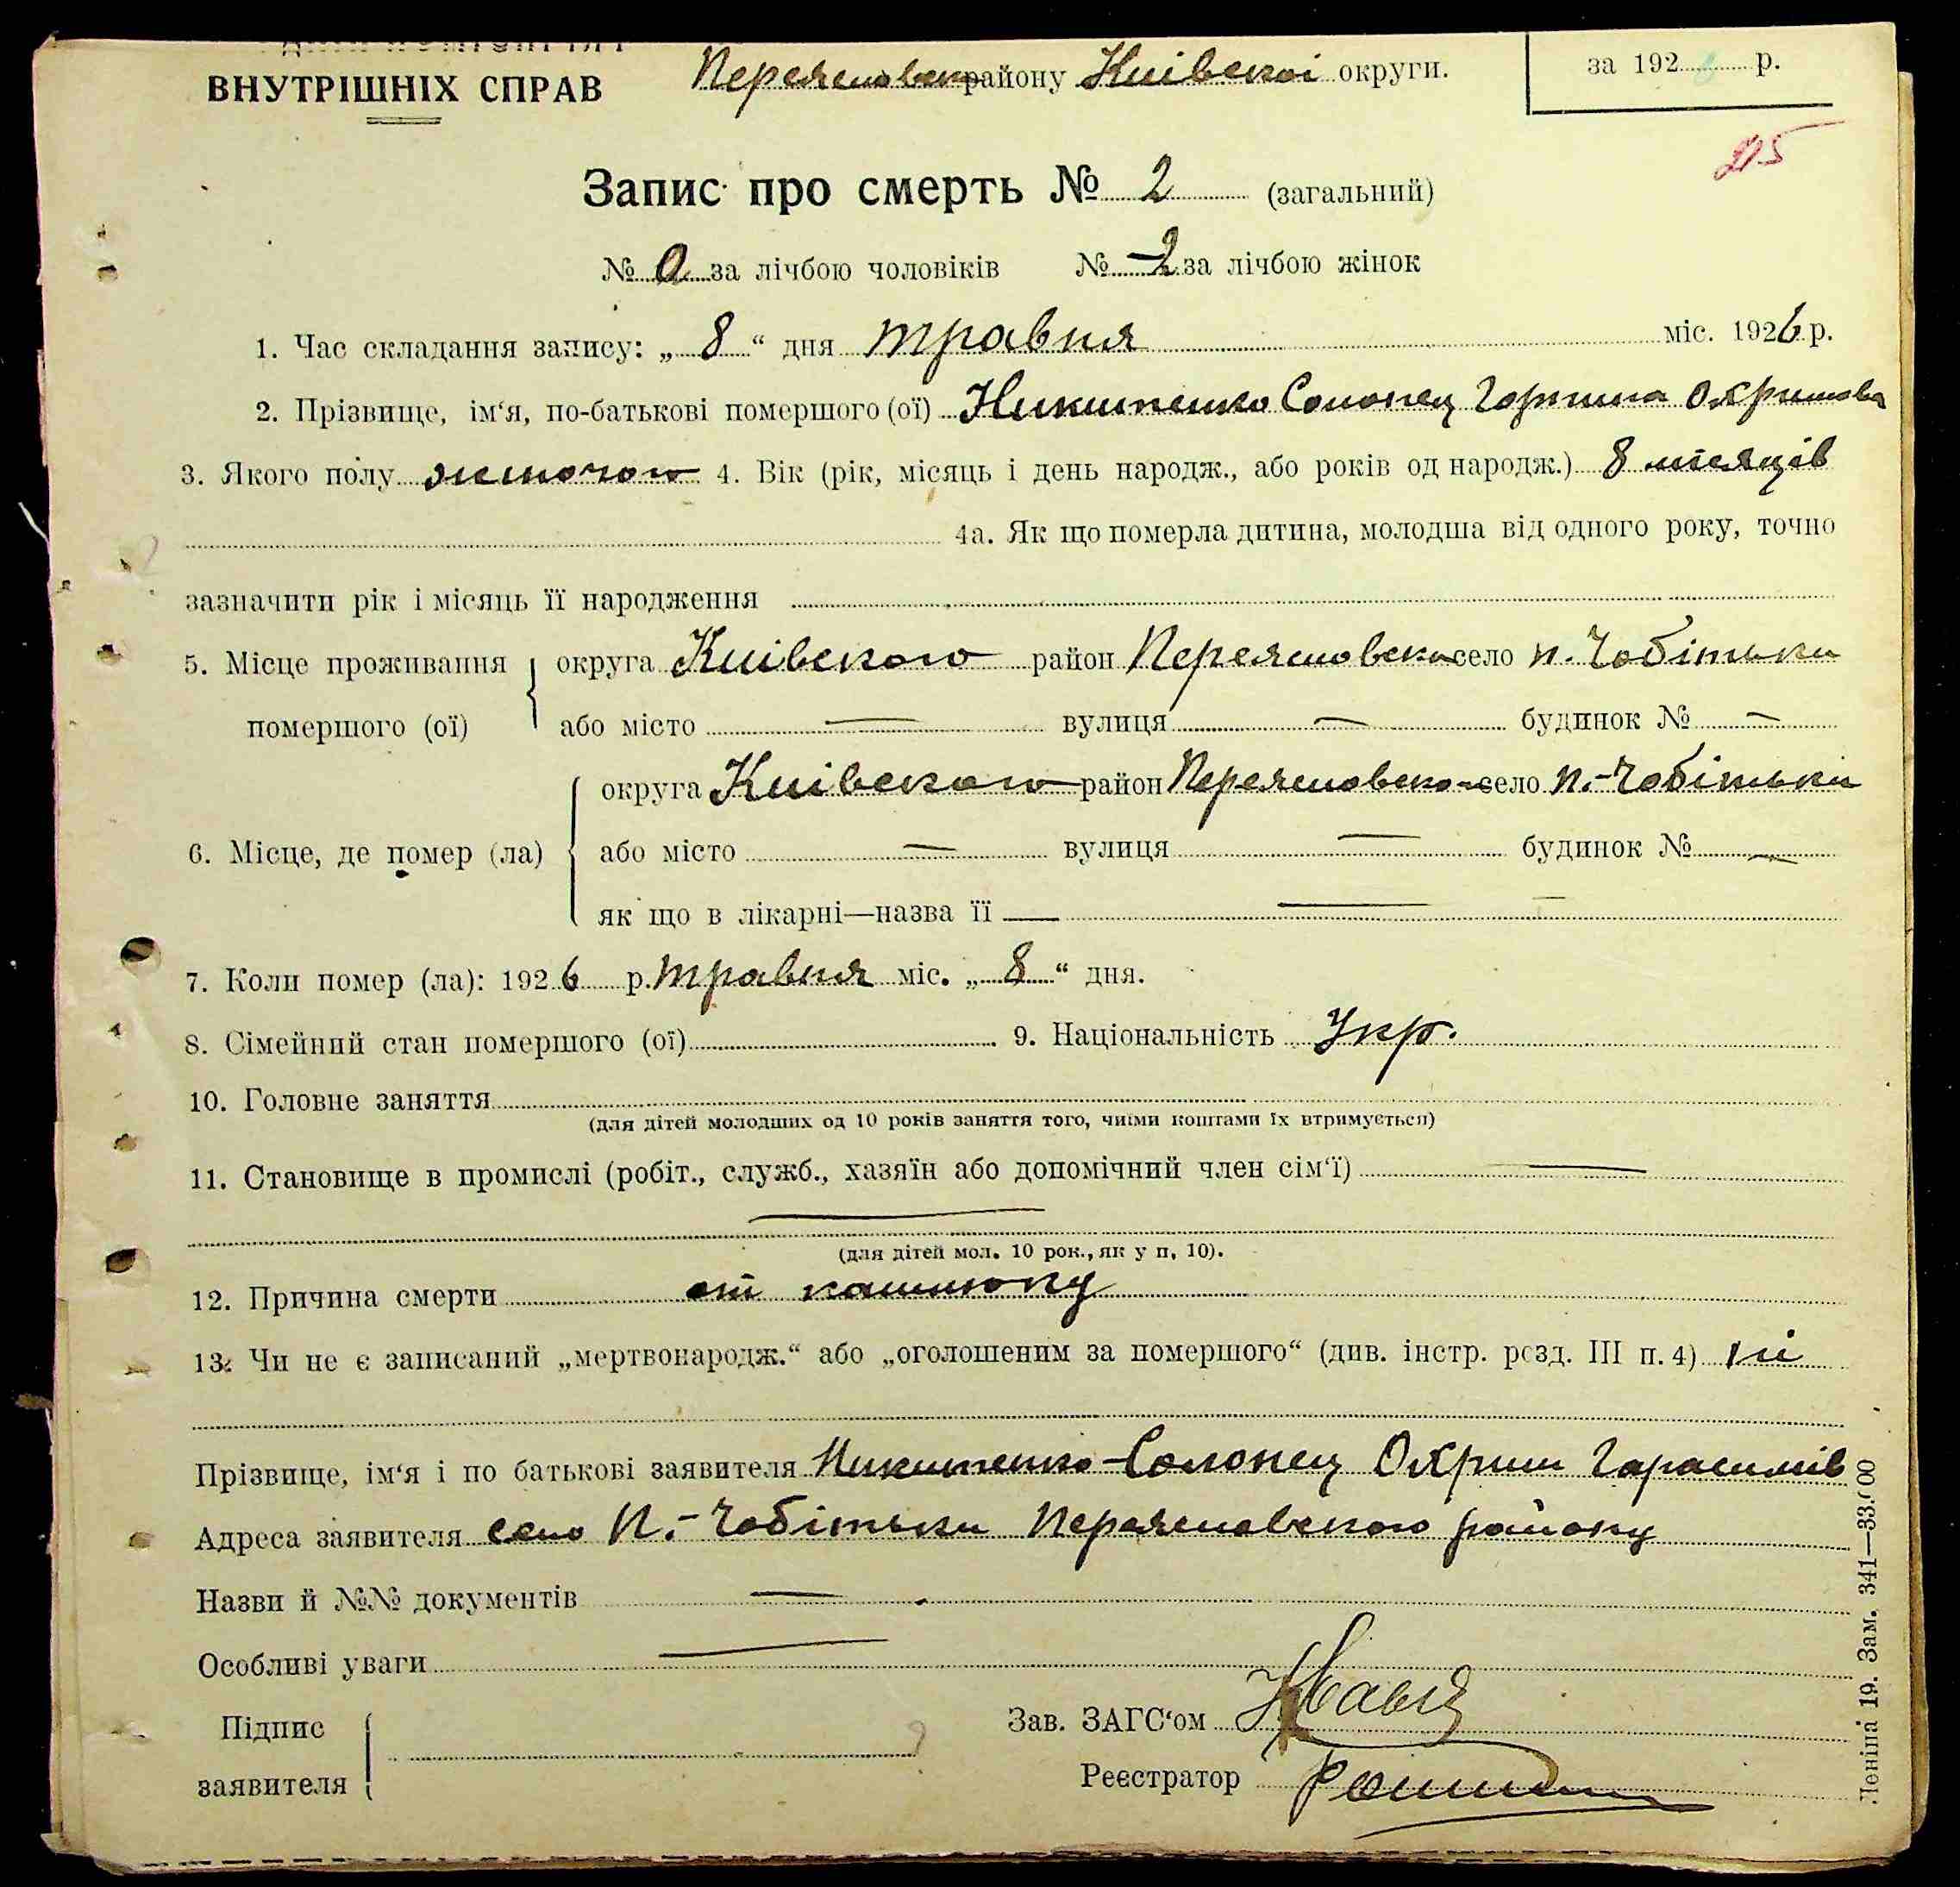 ВНУТРІШНІХ СПРАВ
Переяславск району Київскої округи.
за 192 р.
215
Запис про смерть № 2 (загальний)
№ 0 за лічбою чоловіків № 2 за лічбою жінок
1. Час складання запису: „ 8 “ дня травня міс. 1926 р.
2. Прізвище, ім‘я, по-батькові помершого (ої) Никитенко Солонец Горпина Охримова
3. Якого полу жиночого 4. Вік (рік, місяць і день народж., або років од народж.) 8 місяців
4а. Як що померла дитина, молодша від одного року, точно
зазначити рік і місяць її народження
5. Місце проживання округа Київского район Переяславско село п. Чобітьки
помершого (ої) або місто — вулиця — будинок № —
округа Київского район Переяславско село п.-Чобітьки
6. Місце, де помер (ла) або місто — вулиця — будинок № —
як що в лікарні—назва її —
7. Коли помер (ла): 1926 р. травня міс. „ 8 “ дня.
8. Сімейний стан помершого (ої) 9. Національність Укр.
10. Головне заняття
(для дітей молодших од 10 років заняття того, чиїми коштами їх втримується)
11. Становище в промислі (робіт., служб., хазяїн або допомічний член сім‘ї) —
—
(для дітей мол. 10 рок., як у п. 10).
12. Причина смерти от кашлюку
13. Чи не є записаний „мертвонародж.“ або „оголошеним за помершого“ (див. інстр. розд. III п. 4) ні
Прізвище, ім‘я і по батькові заявителя Никитенко-Солонец Охрим Гарасимів
Адреса заявителя село П.-Чобітьки Переяславского району
Назви й №№ документів —
Особливі уваги —
Підпис
заявителя
Зав. ЗАГС‘ом
Реєстратор
Леніна 19. Зам. 341—33.000